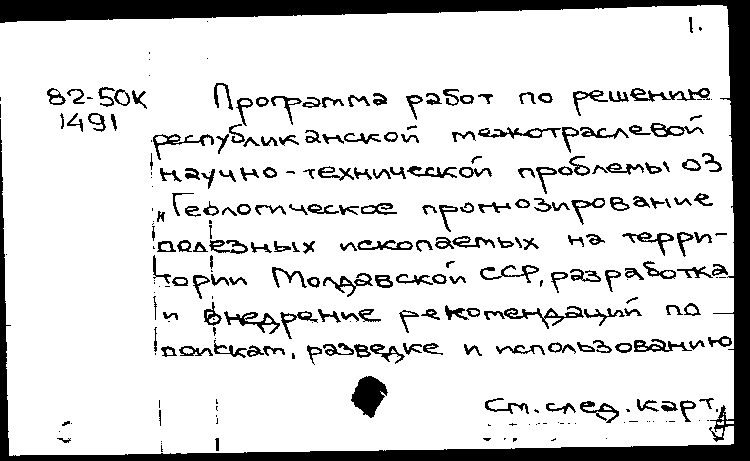 1.
82-50К Программа работ по решению
1491
республиканской межотраслевой
научно-технической проблемы 03
„Геологическое прогнозирование
полезных ископаемых на терри-
тории Молдавской ССР, разработка
и внедрение рекомендаций по
поискам, разведке и использованию
См. след. карт.